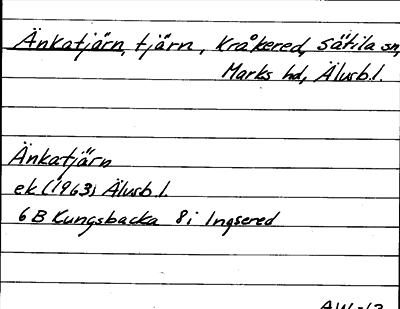 Änkatjärn, tjärn, Kråkered, Sätila sn,
Marks hd, Älvsb.l.
Änkatjärn
ek. (1963) Älvsb.l.
6B Kungsbacka 8i Ingsered